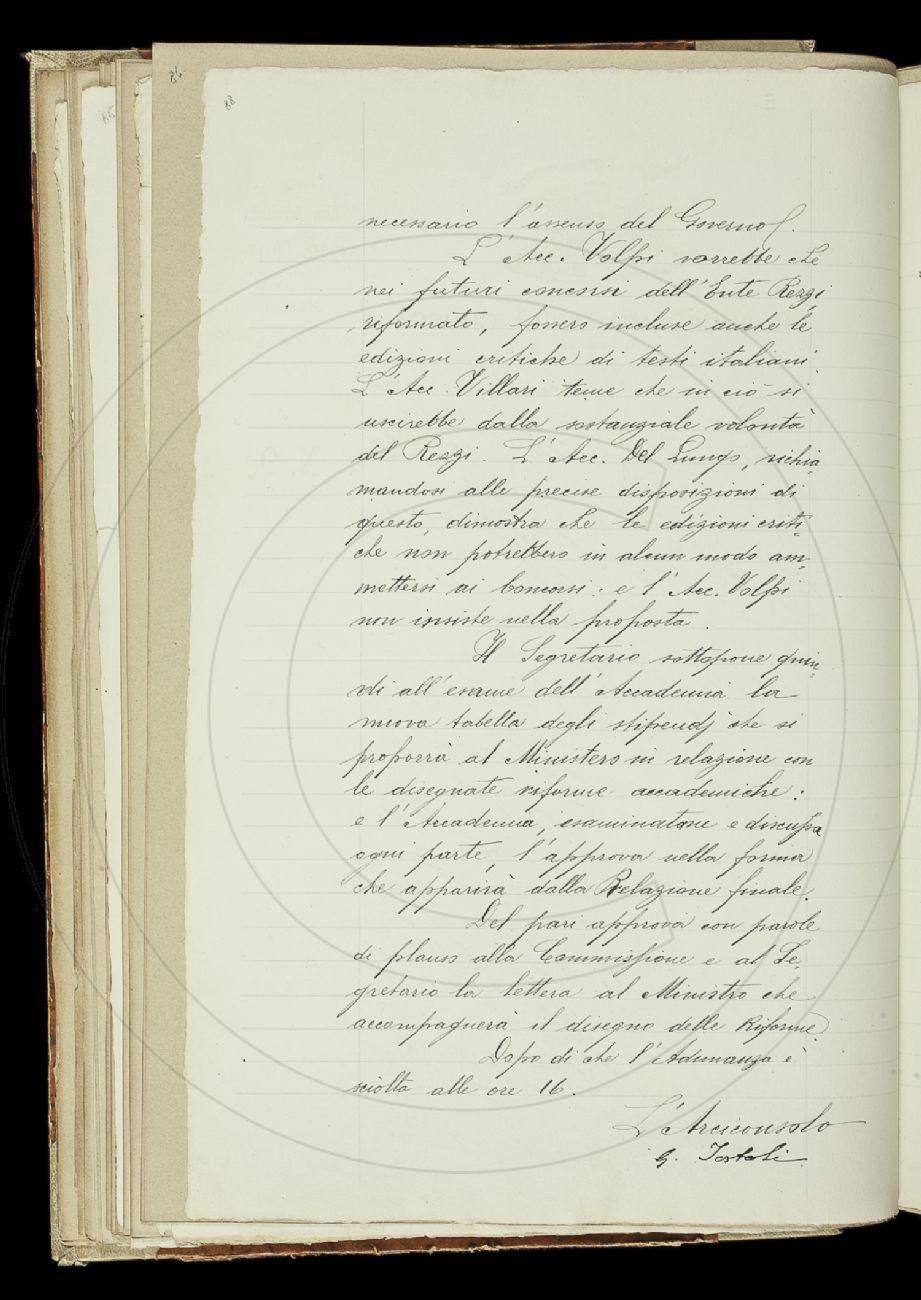 necessario l'assenso del Governo).
L'Acc. Volpi vorrebbe che
nei futuri concorsi dell'Ente Rezzi
riformato, fossero incluse anche le
edizioni critiche di testi italiani.
L'Acc. Villari teme che in ciò si
uscirebbe dalla sostanziale volontà
del Rezzi. L'Acc. Del Lungo, richia=
mandosi alle precise disposizioni di
questo, dimostra che le edizioni criti=
che non potrebbero in alcun modo am=
mettersi ai Concorsi: e l'Acc. Volpi
non insiste nella proposta.
Il Segretario sottopone quin=
di all'esame dell'Accademia la
nuova tabella degli stipendj che si
proporrà al Ministero in relazione con
le disegnate riforme accademiche:
e l'Accademia, esaminatone e discussa
ogni parte, l'approva nella forma
che apparirà dalla Relazione finale.
Del pari approva con parole
di plauso alla Commissione e al Se=
gretario la lettera al Ministro che
accompagnerà il disegno delle Riforme.
Dopo di che l'Adunanza è
sciolta alle ore 16.
L'Arciconsolo
G. Tortoli